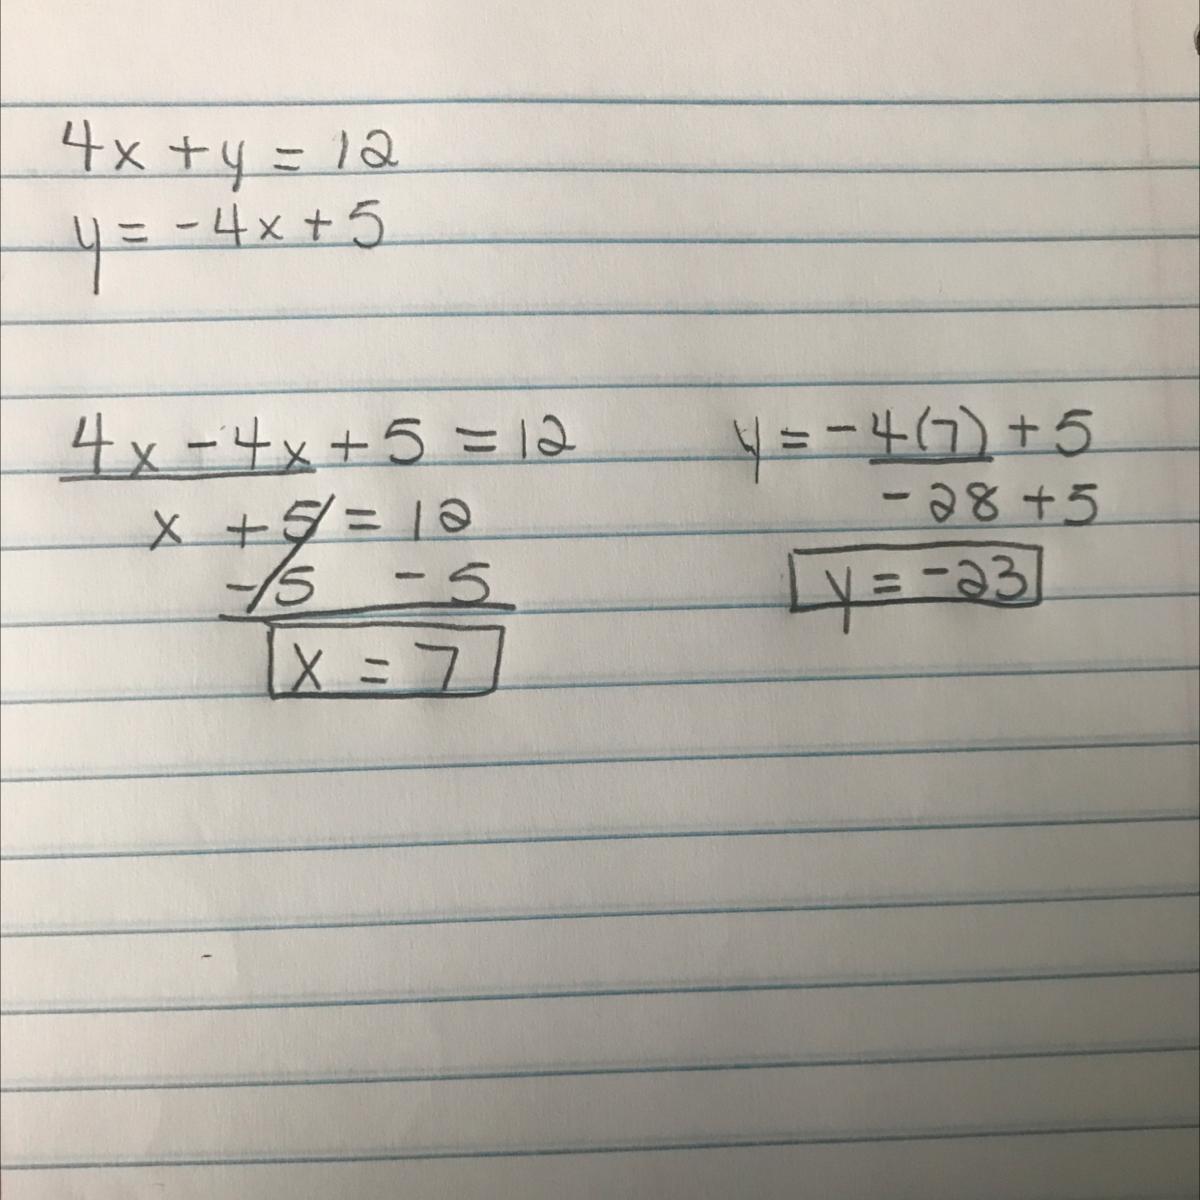 4x + y = 12
y = -4x + 5
4x - 4x + 5 = 12
x + 5 = 12
-5 -5
x = 7
y = -4(7) + 5
-28 + 5
y = -23